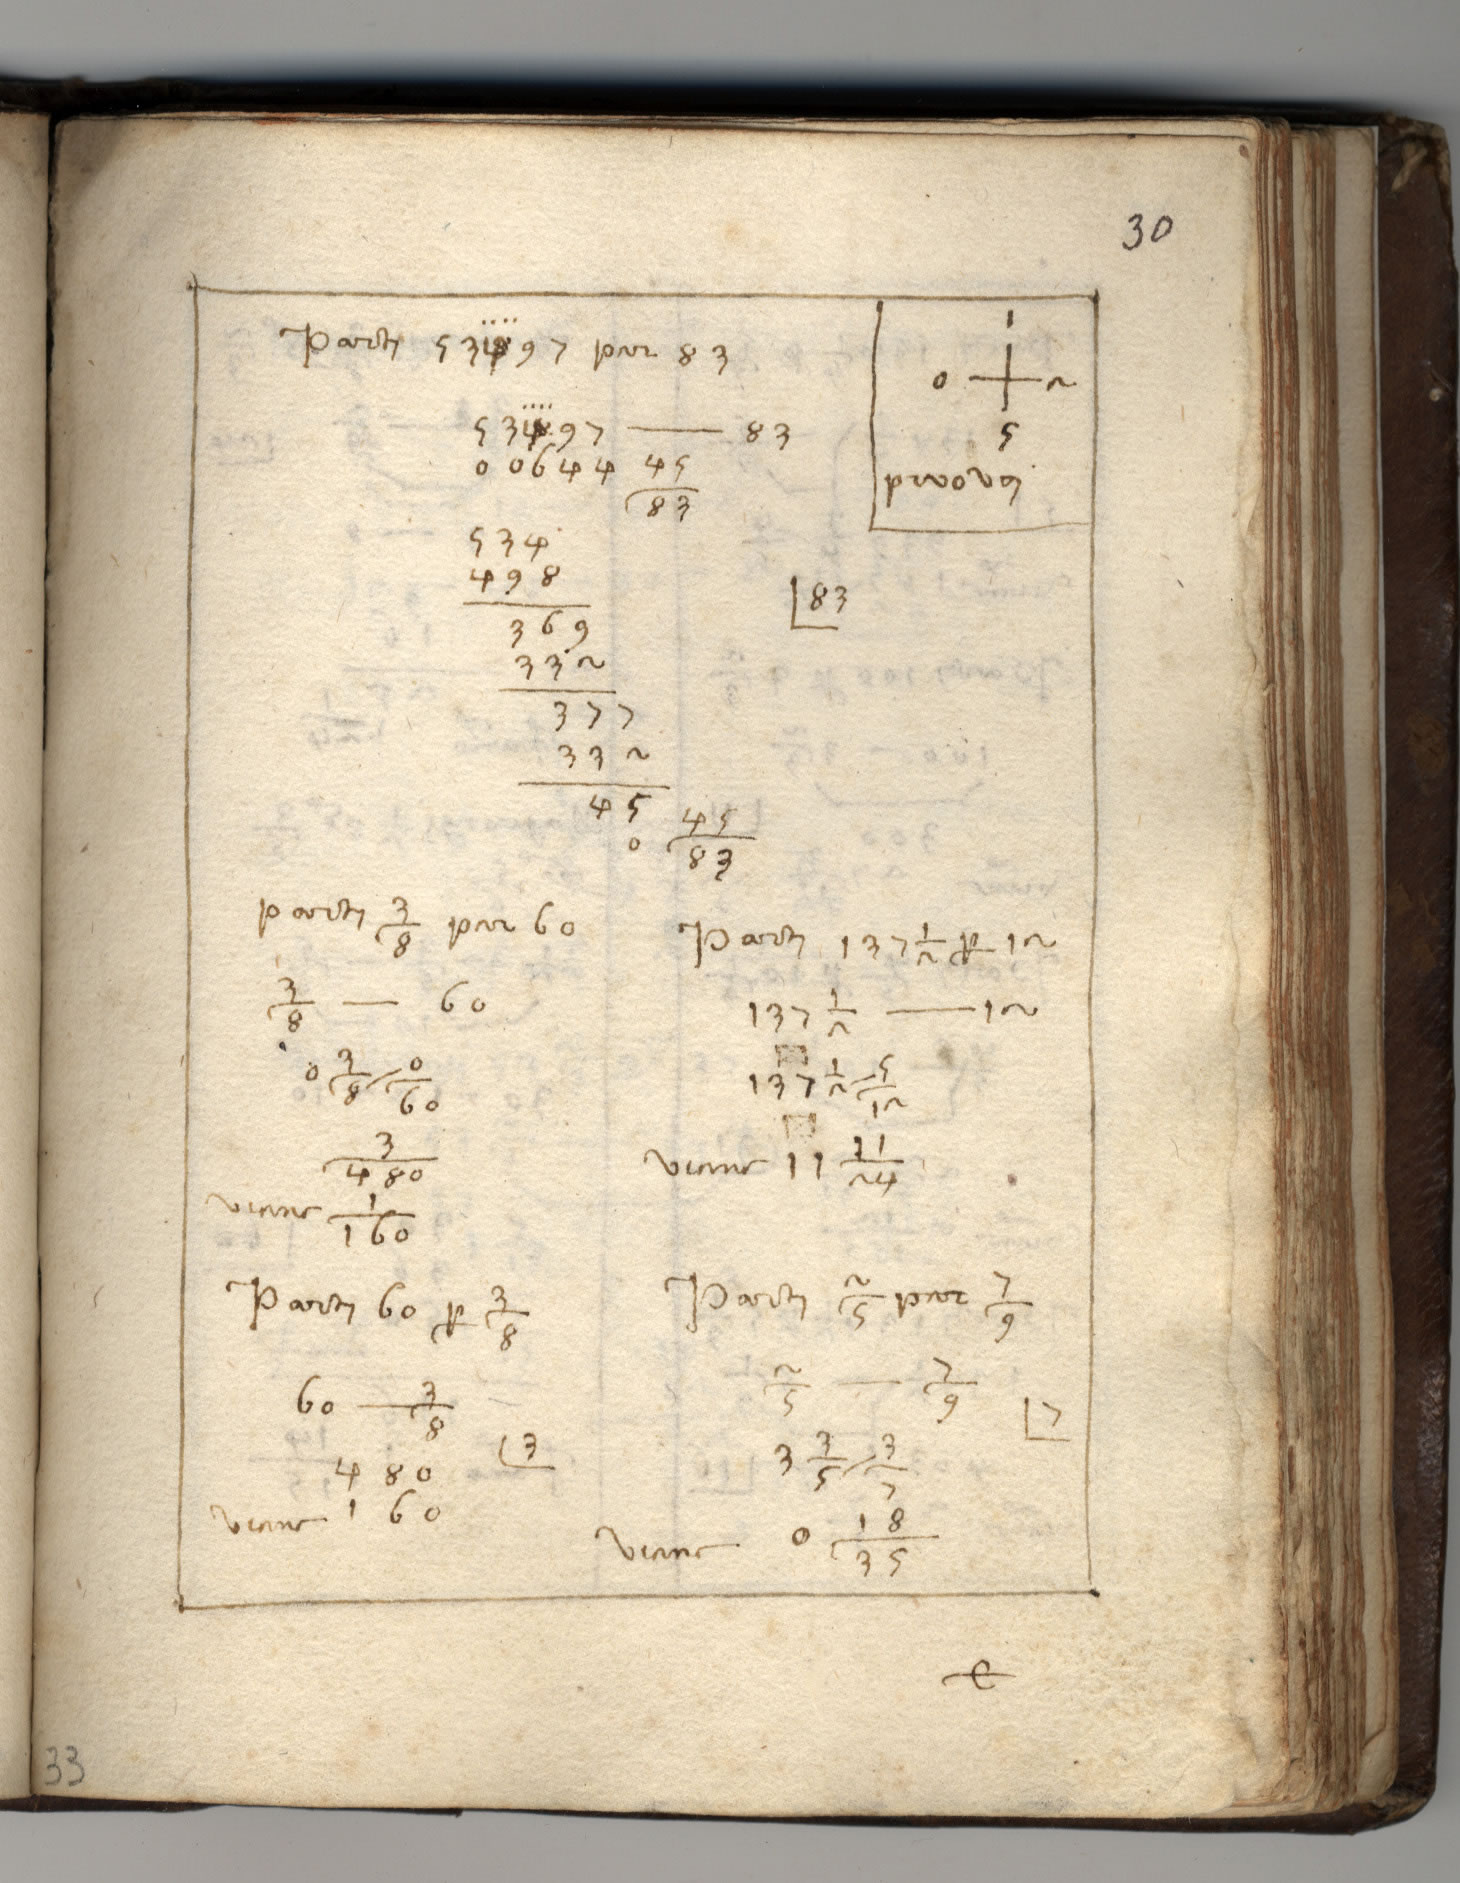 30
Parti 53497 per 83
53497 — 83
00644 45/83
1
0 2
5
prova
534
498
83
369
332
377
332
45
0 45/83
parti 3/8 per 60
3/8 — 60
0 3/8 0/60
3/480
viene 1/160
Parti 137 1/2 p 12
137 1/2 — 12
137 1/2 5/12
viene 11 11/24
Parti 60 p 3/8
60 — 3/8
3
480
viene 160
Parti 2/5 per 7/9
2/5 — 7/9
7
3 3/5 3/7
viene 0 18/35
33